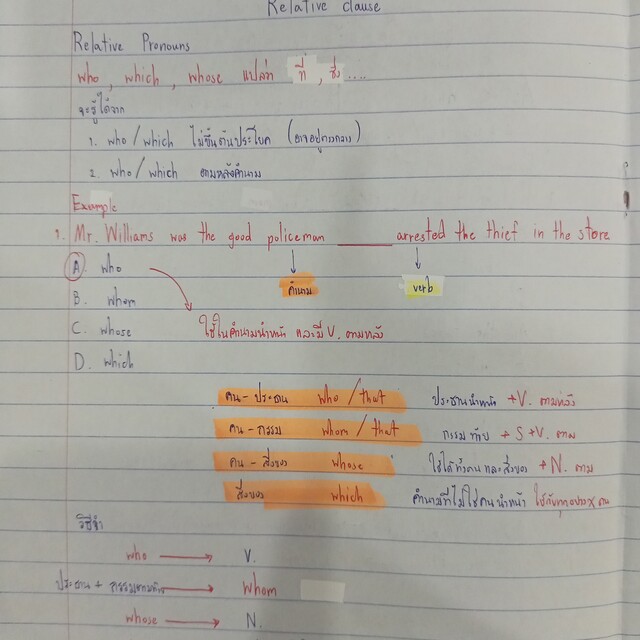 Relative clause
Relative Pronouns
who, which, whose แปลว่า ที่, ซึ่ง ....
จะรู้ได้จาก
1. who/which ไม่ขึ้นต้นประโยค (อาจอยู่ตรงกลาง)
2. who/which ตามหลังคำนาม
Example
1. Mr. Williams was the good policeman ______ arrested the thief in the store
A. who
คำนาม verb
B. whom
C. whose ใช้ในคำนามนำหน้า และมี V. ตามหลัง
D. which
คน - ประธาน who / that ประธานนำหน้า + V. ตามหลัง
คน - กรรม whom / that กรรม + S + V. ตาม
คน - สิ่งของ whose ใช้ได้ทั้งคน และสิ่งของ + N. ตาม
สิ่งของ which คำนามที่ไม่ใช่คน นำหน้า
วิธีจำ
who → V.
ประธาน + → Whom
whose → N.